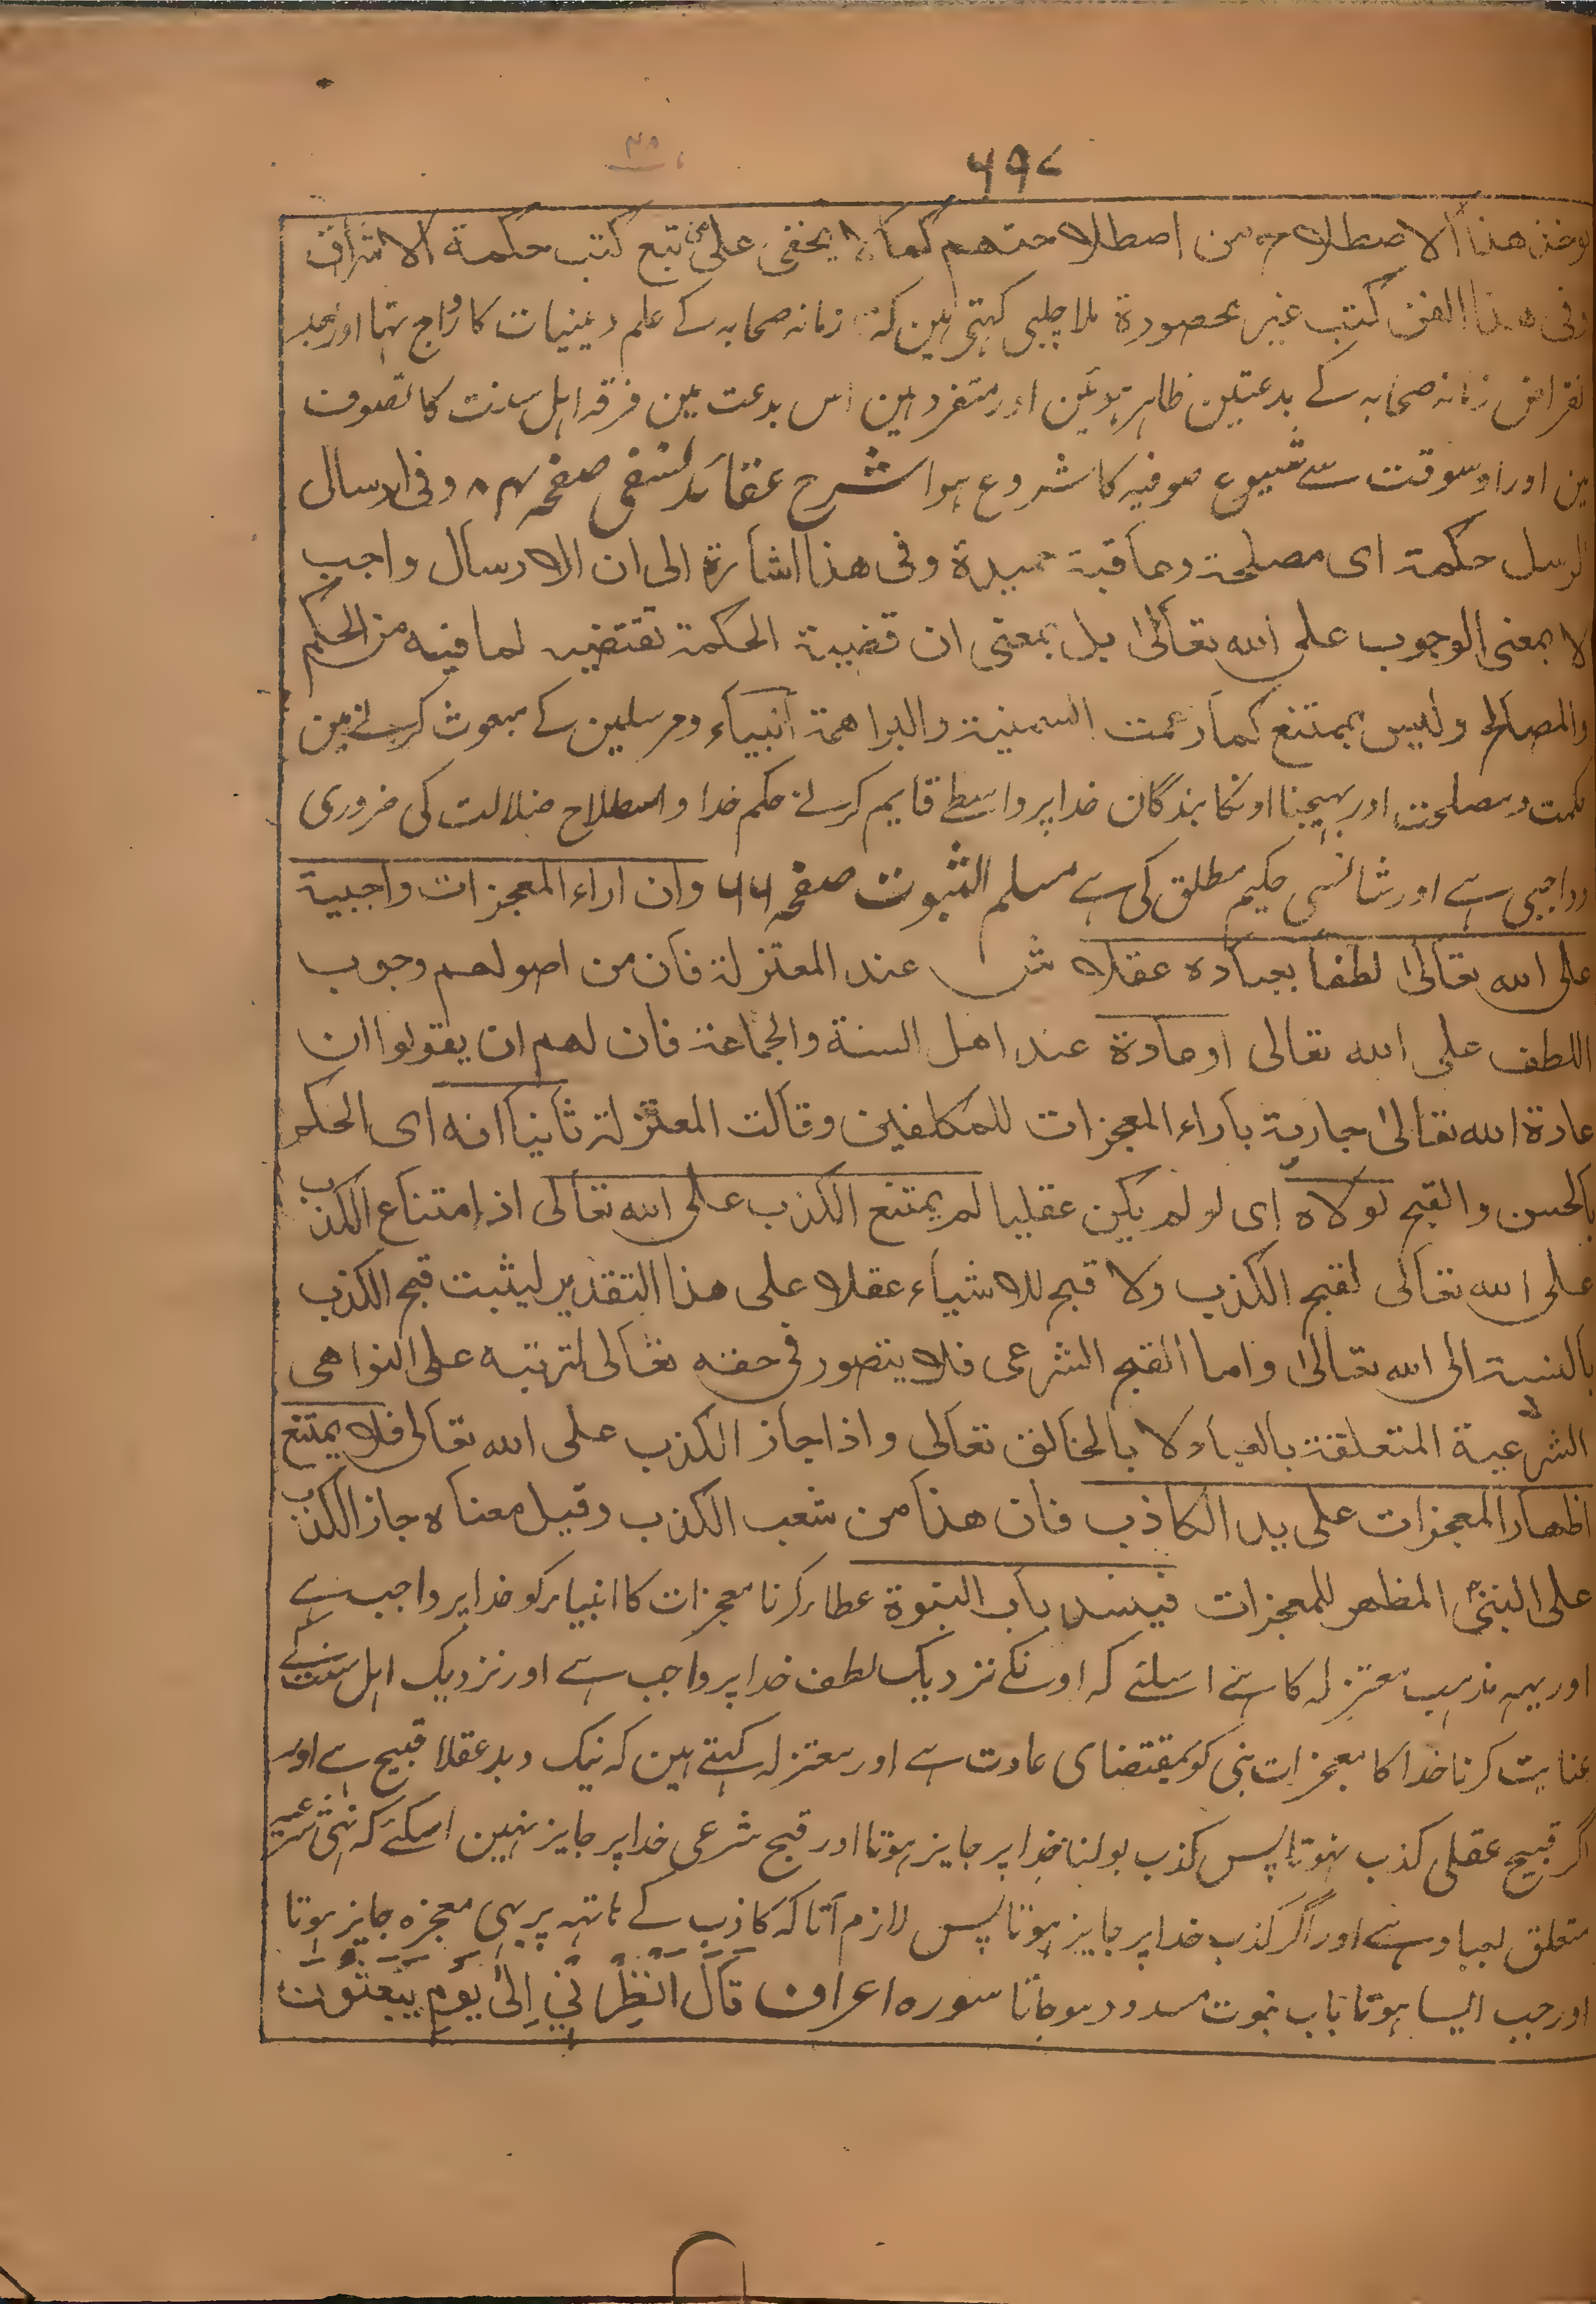 ۶۹۷
يوخذ هذا الاصطلاح من اصطلاحتهم كما لا يخفى على من تتبع كتب حكمة الاشراق
وفى هذا الفن كتب غير محصورة ملا چلپی کہتی ہین کہ زمانہ صحابہ کے علم دینیات کا رواج تہا اور بعد
نقراض زمانہ صحابہ کے بدعتین ظاہر ہوئین اور متفرد ہین اس بدعت مین فرقہ اہل سنت کا تصوف
مین اور اوسوقت سے شیوع صوفیہ کا شروع ہوا شرح عقائد نسفی صفحہ ۸۴ وفی ارسال
الرسل حكمة اى مصلحة وعاقبة حميدة وفى هذا اشارة الى ان الارسال واجب
لا بمعنى الوجوب على الله تعالىٰ بل بمعنى ان قضية الحكمة تقتضيه لما فيه من الحكم
والمصالح وليس بممتنع كما زعمت السمنية والبراهمة انبیاء ومرسلین کے مبعوث کرنے مین
حکمت ومصلحت اور بہیجنا اونکا بندگان خدا پر واسطے قایم کرنے حکم خدا و اصطلاح ضلالت کی ضروری
وواجبی ہے اور شانسی حکیم مطلق کی ہے مسلم الثبوت صفحہ ۶۶ وان اراء المعجزات واجبية
على الله تعالىٰ لطفا بعباده عقلا ش عند المعتزلة فان من اصولهم وجوب
اللطف على الله تعالى او عادة عند اهل السنة والجماعة فان لهم ان يقولوا ان
عادة الله تعالىٰ جارية باراء المعجزات للمكلفين وقالت المعتزلة ثانيا انه اى الحكم
بالحسن والقبح لولاه اى لو لم يكن عقليا لم يمتنع الكذب على الله تعالى اذ امتناع الكذب
على الله تعالى لقبح الكذب ولا قبح للاشياء عقلا على هذا التقدير ليثبت قبح الكذب
بالنسبة الى الله تعالىٰ واما القبح الشرعى فلا يتصور فى حقه تعالى لترتبه على النواهى
الشرعية المتعلقة بالعباد لا بالخالق تعالى واذا جاز الكذب على الله تعالى فلا يمتنع
اظهار المعجزات على يد الكاذب فان هذا من شعب الكذب وقيل معناه جاز الكذب
على النبى المظهر للمعجزات فينسد باب النبوة عطا کرنا معجزات کا انبیا کو خدا پر واجب ہے
اور یہہ مذہب معتزلہ کا ہے اسلئے کہ اونکے نزدیک لطف خدا پر واجب ہے اور نزدیک اہل سنت کے
عنایت کرنا خدا کا معجزات نبی کو بمقتضای عادت ہے اور معتزلہ کہتے ہین کہ نیک وبد عقلا قبیح ہے اور
اگر قبیح عقلی کذب نہوتا پس کذب بولنا خدا پر جایز ہوتا اور قبح شرعی خدا پر جایز نہین اسکئے کہ نہی شرعیہ
متعلق بعباد ہے اور اگر کذب خدا پر جایز ہوتا پس لازم آتا کہ کاذب کے ہاتہہ پر بہی معجزہ جایز ہوتا
اور جب ایسا ہوتا باب نبوت مسدود ہو جاتا سورہ اعراف قَالَ اَنْظِرْنِیْ اِلیٰ یَوْمِ یُبْعَثُوْنَ